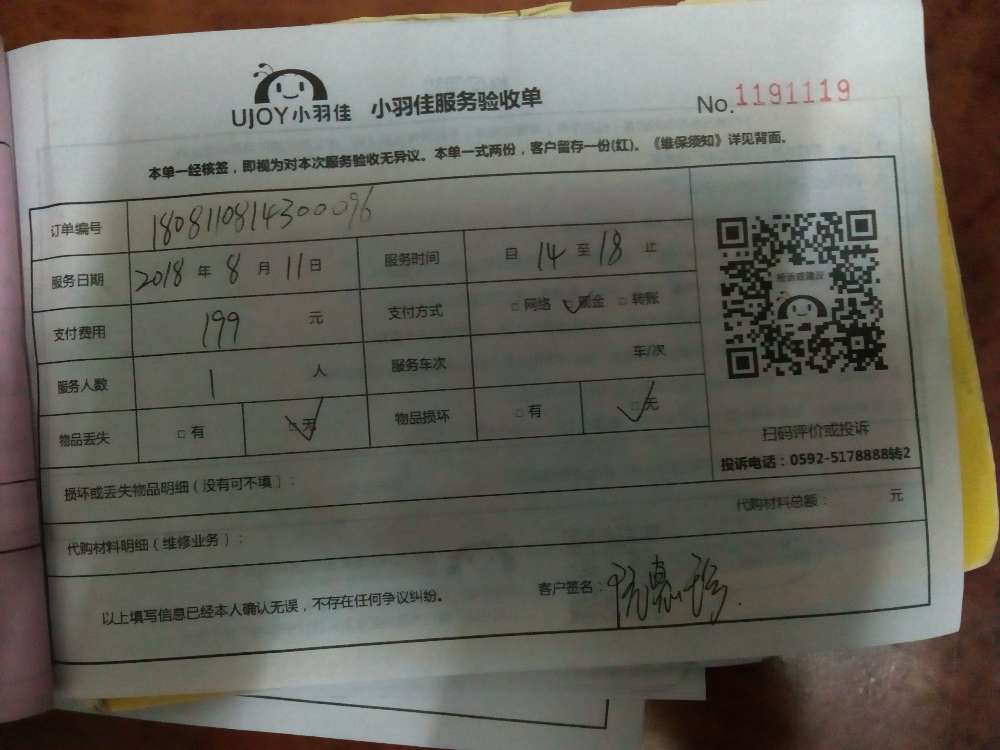 UJOY小羽佳 小羽佳服务验收单 No.1191119
本单一经核签，即视为对本次服务验收无异议。本单一式两份，客户留存一份(红)。《维保须知》详见背面。
订单编号 1808110814300096
服务日期 2018 年 8 月 11 日 服务时间 自 14 至 18 止
支付费用 199 元 支付方式 □ 网络 ✓ 现金 □ 转账
服务人数 1 人 服务车次 车/次
物品丢失 □ 有 □ ✓ 无 物品损坏 □ 有 □ ✓ 无
投诉或建议
扫码评价或投诉
投诉电话：0592-5178888转2
损坏或丢失物品明细（没有可不填）：
代购材料明细（维修业务）： 代购材料总额： 元
以上填写信息已经本人确认无误，不存在任何争议纠纷。 客户签名：